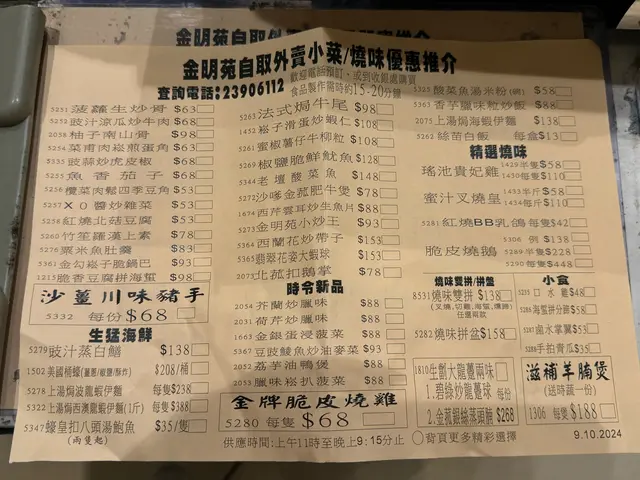 金明苑自取外賣小菜/燒味優惠推介
查詢電話:23906112
歡迎電話預訂、或到收銀處購買
食品製作需時約15-20分鐘
5251 菠蘿生炒骨 $63
5252 豉汁涼瓜炒牛肉 $68
2038 柚子南山骨 $98
5254 菜甫肉崧煎蛋角 $63
5335 豉蒜炒虎皮椒 $68
5255 魚香茄子 $68
5256 欖菜肉鬆四季豆角 $53
5257 XO醬炒雜菜 $53
5258 紅燒北菇豆腐 $53
5260 竹笙羅漢上素 $78
5276 粟米魚肚羹 $83
5361 金勾崧子脆鍋巴 $93
1215 脆香豆腐拼海蜇 $98
沙薑川味豬手
5332 每份 $68
生猛海鮮
5279 豉汁蒸白鱔 $138
1502 美國桶蠔(薑蔥/椒鹽/酥炸) $208/桶
5278 上湯焗波龍蝦伊麵 每隻$238
5322 上湯焗西澳龍蝦伊麵(1斤) 每隻$388
5347 蠔皇扣八頭湯鮑魚 $35/隻
(兩隻起)
5263 法式焗牛尾 $98
1452 崧子滑蛋炒蝦仁 $108
5261 蜜椒薯仔牛柳粒 $108
5269 椒鹽脆鮮魷魚 $128
5344 老壇酸菜魚 $148
5272 沙嗲金菰肥牛煲 $78
1674 西芹雲耳炒生魚片 $88
5273 金明苑小炒王 $93
5364 西蘭花炒帶子 $153
5365 翡翠花姿大蝦球 $153
2071 北菰扣鵝掌 $78
時令新品
2054 芥蘭炒臘味 $88
2031 荷芹炒臘味 $88
1663 金銀蛋浸菠菜 $88
5367 豆豉鯪魚炒油麥菜 $93
2052 荔芋油鴨煲 $88
2053 臘味崧扒菠菜 $88
金牌脆皮燒雞
5280 每隻 $68
供應時間:上午11時至晚上9:15分止
5325 酸菜魚湯米粉(鍋) $58
5363 香芋臘味粒炒飯 $88
2075 上湯焗海蝦伊麵 $138
5262 絲苗白飯 每盒 $13
精選燒味
瑤池貴妃雞 1429 半隻 $58
1430 每隻 $110
蜜汁叉燒皇 1433 半斤 $58
1434 每斤 $110
5281 紅燒BB乳鴿 每隻 $42
脆皮燒鵝 5306 例 $138
5289 半隻 $228
5290 每隻 $448
燒味雙拼/拼盤
8531 燒味雙拼 $138
(叉燒,切雞,海蜇,燻蹄)
任選兩款
5282 燒味拼盆 $158
小食
口水雞 $48
5286 海蜇拼分蹄 $58
5287 鹵水掌翼 $53
5288 手拍青瓜 $35
1810 生劏大龍躉兩味
1. 碧綠炒龍躉球 每份
2. 金菰銀絲蒸頭腩 $268
滋補羊腩煲
(送時蔬一份)
1306 每窩 $188
背頁更多精彩選擇
9.10.2024